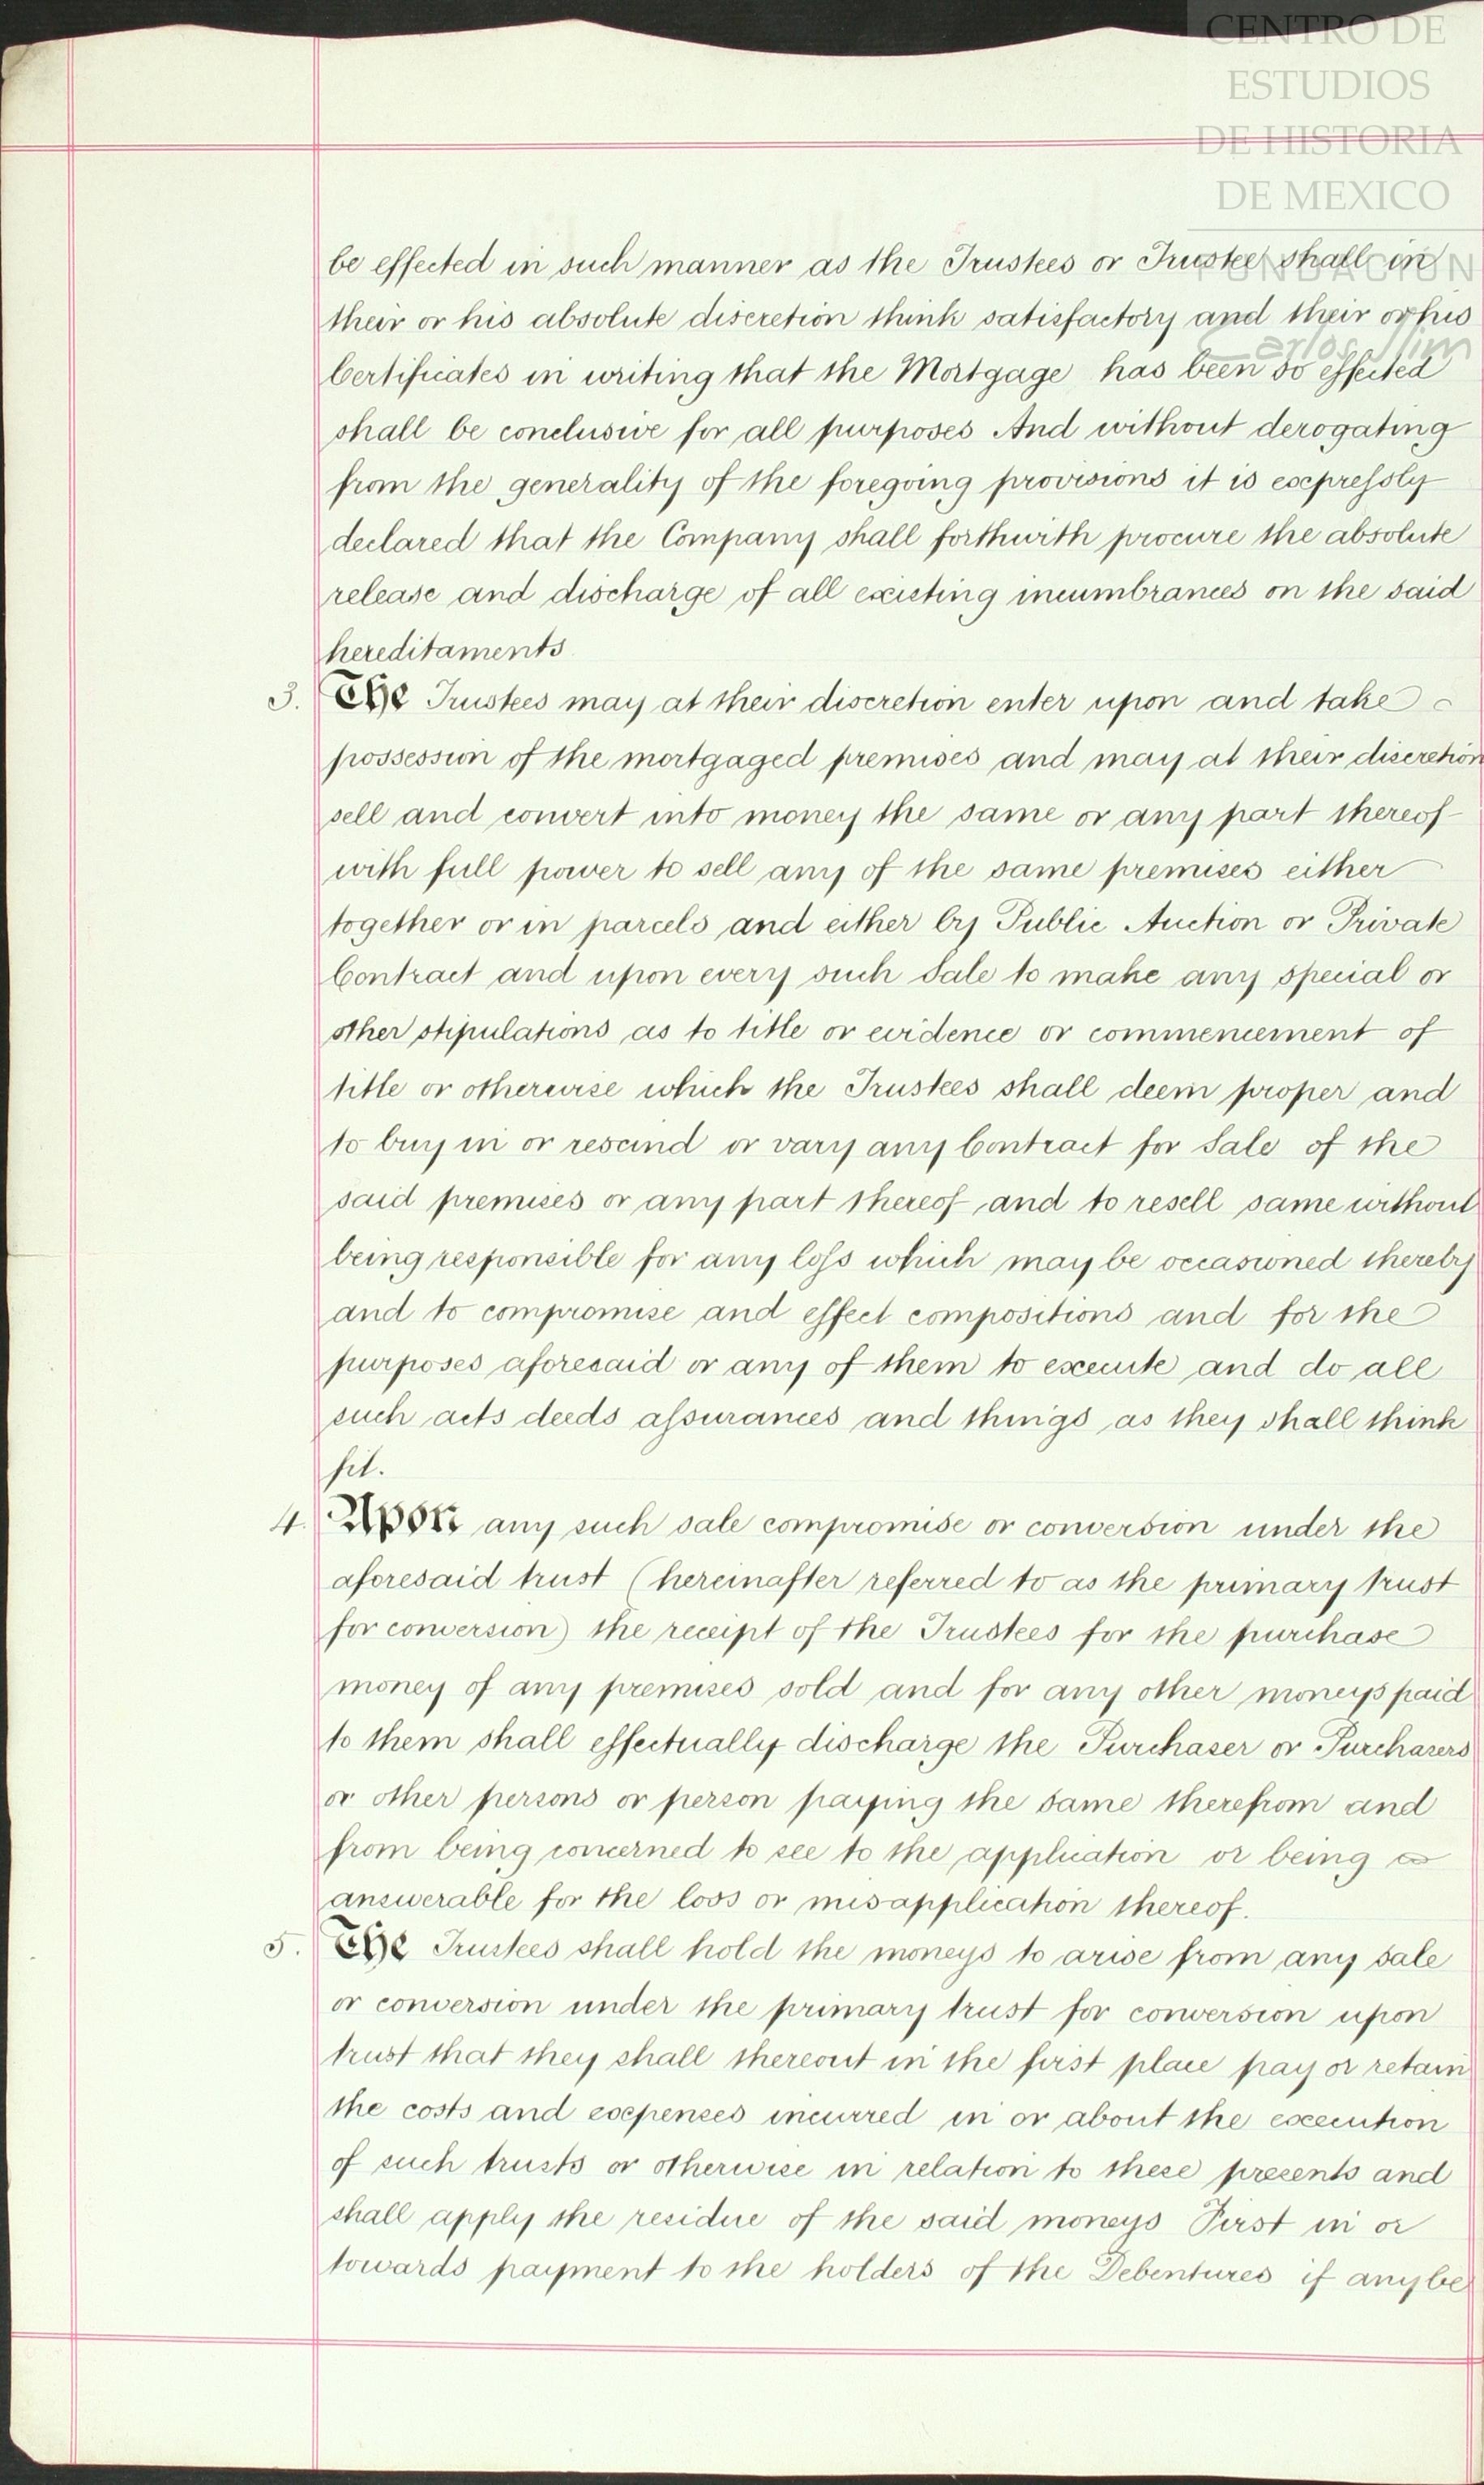 CENTRO DE
ESTUDIOS
DE HISTORIA
DE MEXICO
FUNDACIÓN
Carlos Slim
be effected in such manner as the Trustees or Trustee shall in
their or his absolute discretion think satisfactory and their or his
Certificates in writing that the Mortgage has been so effected
shall be conclusive for all purposes And without derogating
from the generality of the foregoing provisions it is expressly
declared that the Company shall forthwith procure the absolute
release and discharge of all existing incumbrances on the said
hereditaments
3. The Trustees may at their discretion enter upon and take
possession of the mortgaged premises and may at their discretion
sell and convert into money the same or any part thereof
with full power to sell any of the same premises either
together or in parcels and either by Public Auction or Private
Contract and upon every such Sale to make any special or
other stipulations as to title or evidence or commencement of
title or otherwise which the Trustees shall deem proper and
to buy in or rescind or vary any Contract for Sale of the
said premises or any part thereof and to resell same without
being responsible for any loss which may be occasioned thereby
and to compromise and effect compositions and for the
purposes aforesaid or any of them to execute and do all
such acts deeds assurances and things as they shall think
fit.
4. Upon any such sale compromise or conversion under the
aforesaid trust (hereinafter referred to as the primary trust
for conversion) the receipt of the Trustees for the purchase
money of any premises sold and for any other moneys paid
to them shall effectually discharge the Purchaser or Purchasers
or other persons or person paying the same therefrom and
from being concerned to see to the application or being
answerable for the loss or misapplication thereof.
5. The Trustees shall hold the moneys to arise from any sale
or conversion under the primary trust for conversion upon
trust that they shall thereout in the first place pay or retain
the costs and expenses incurred in or about the execution
of such trusts or otherwise in relation to these presents and
shall apply the residue of the said moneys First in or
towards payment to the holders of the Debentures if any be